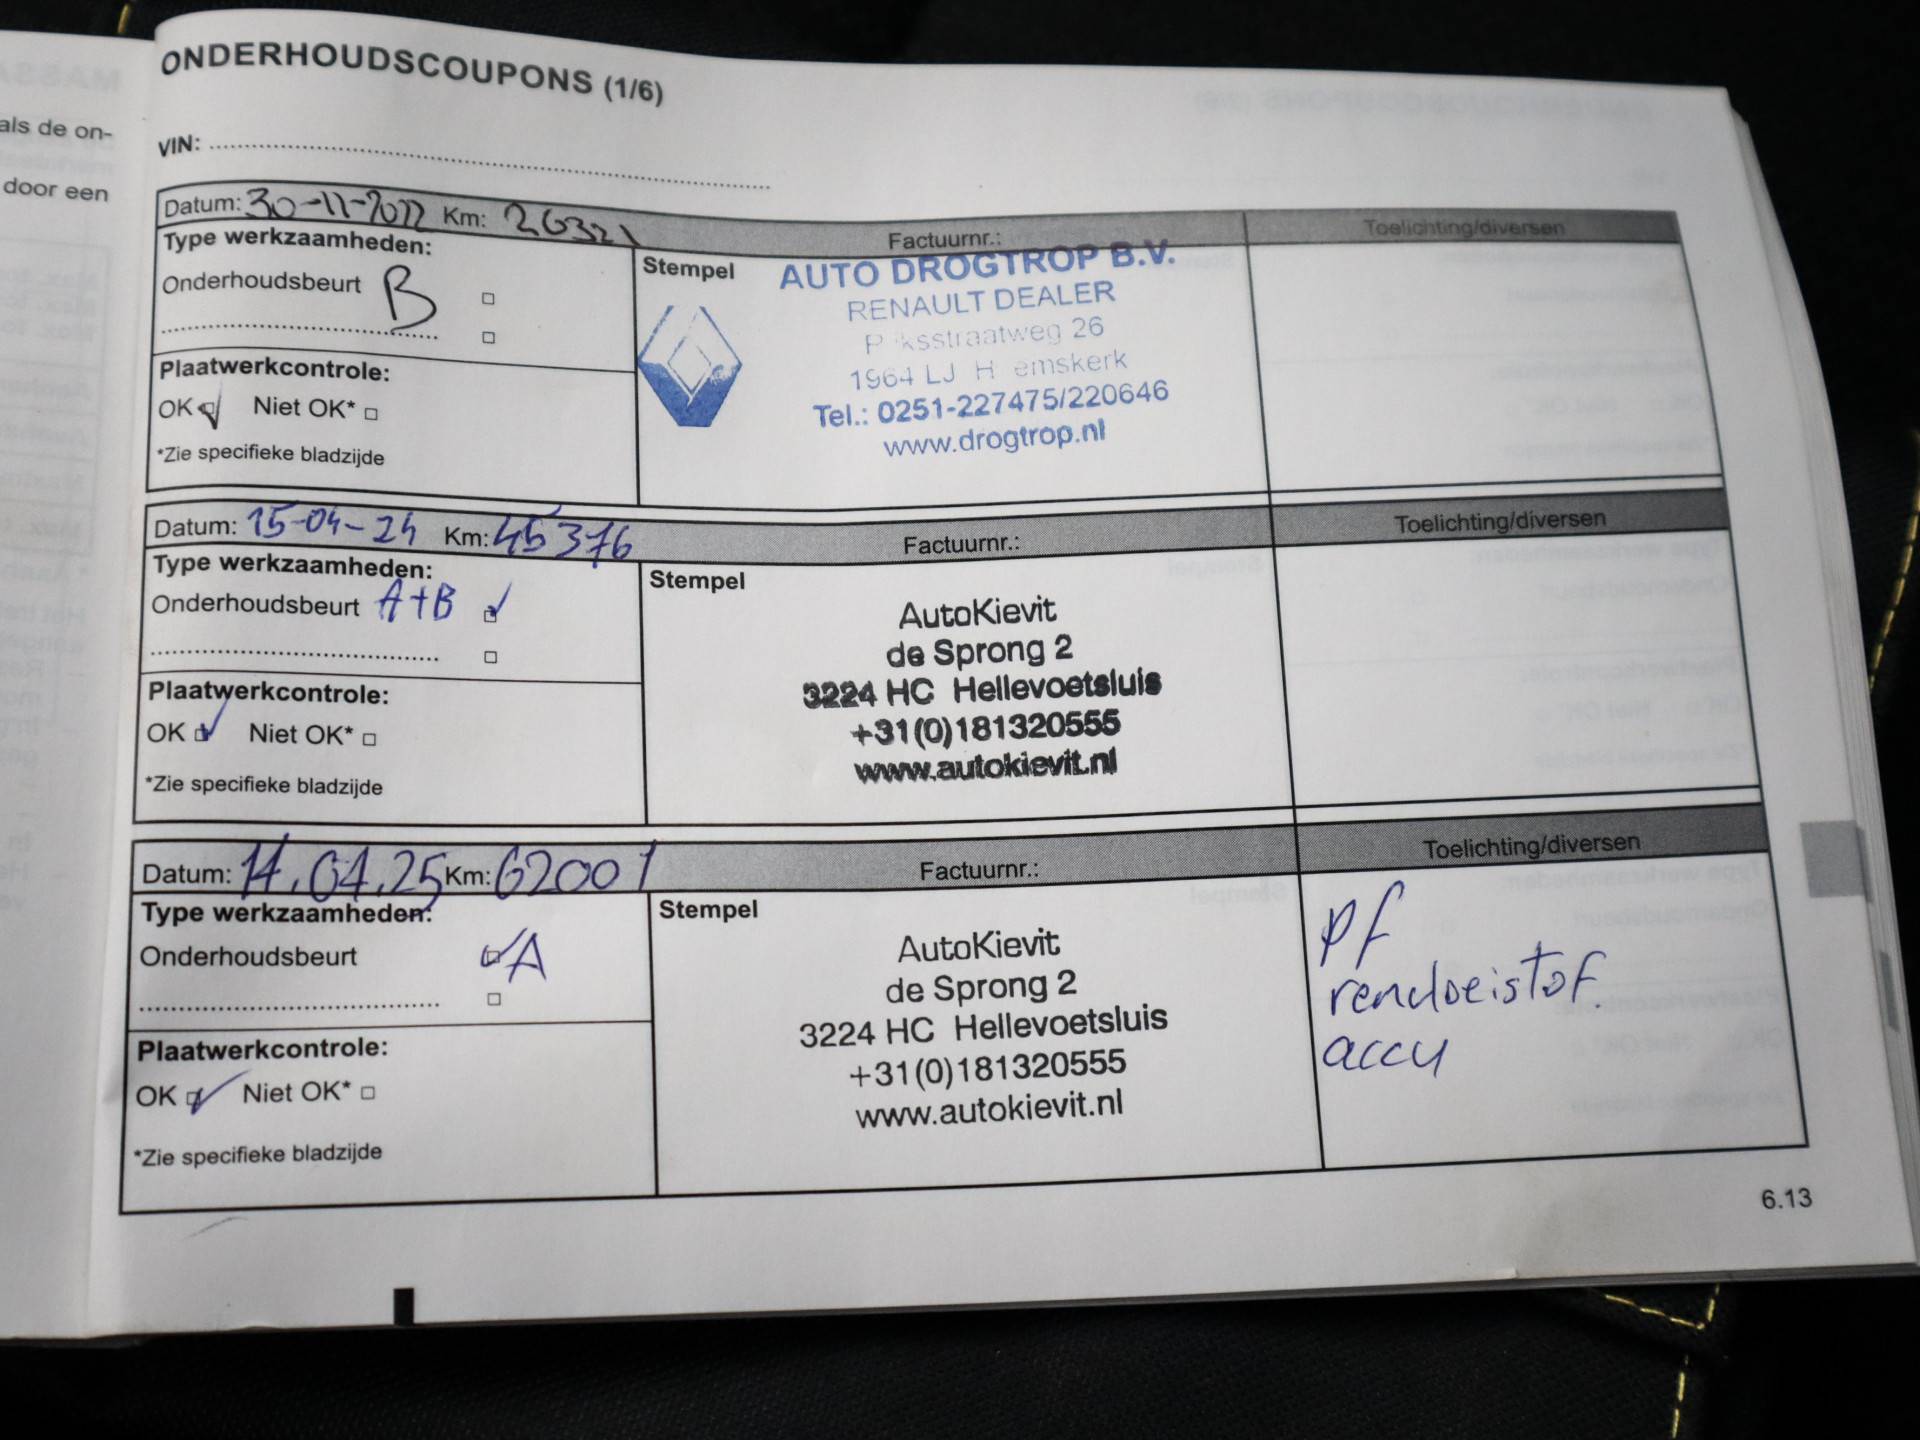 als de on-
door een
ONDERHOUDSCOUPONS (1/6)
VIN:
Datum: 30-11-2022 Km: 26321 Factuurnr.: Toelichting/diversen
Type werkzaamheden:
Onderhoudsbeurt B
Plaatwerkcontrole:
OK Niet OK*
*Zie specifieke bladzijde
Stempel
AUTO DROGTROP B.V.
RENAULT DEALER
26
1964 LJ
Tel.: 0251-227475/220646
www.drogtrop.nl
Datum: 15-04-24 Km: 45376 Factuurnr.: Toelichting/diversen
Type werkzaamheden:
Onderhoudsbeurt A+B
Plaatwerkcontrole:
OK Niet OK*
*Zie specifieke bladzijde
Stempel
AutoKievit
de Sprong 2
3224 HC Hellevoetsluis
+31(0)181320555
www.autokievit.nl
Datum: 14.04.25 Km: 62001 Factuurnr.: Toelichting/diversen
Type werkzaamheden:
Onderhoudsbeurt A
Plaatwerkcontrole:
OK Niet OK*
*Zie specifieke bladzijde
Stempel
AutoKievit
de Sprong 2
3224 HC Hellevoetsluis
+31(0)181320555
www.autokievit.nl
pf
accu
6.13